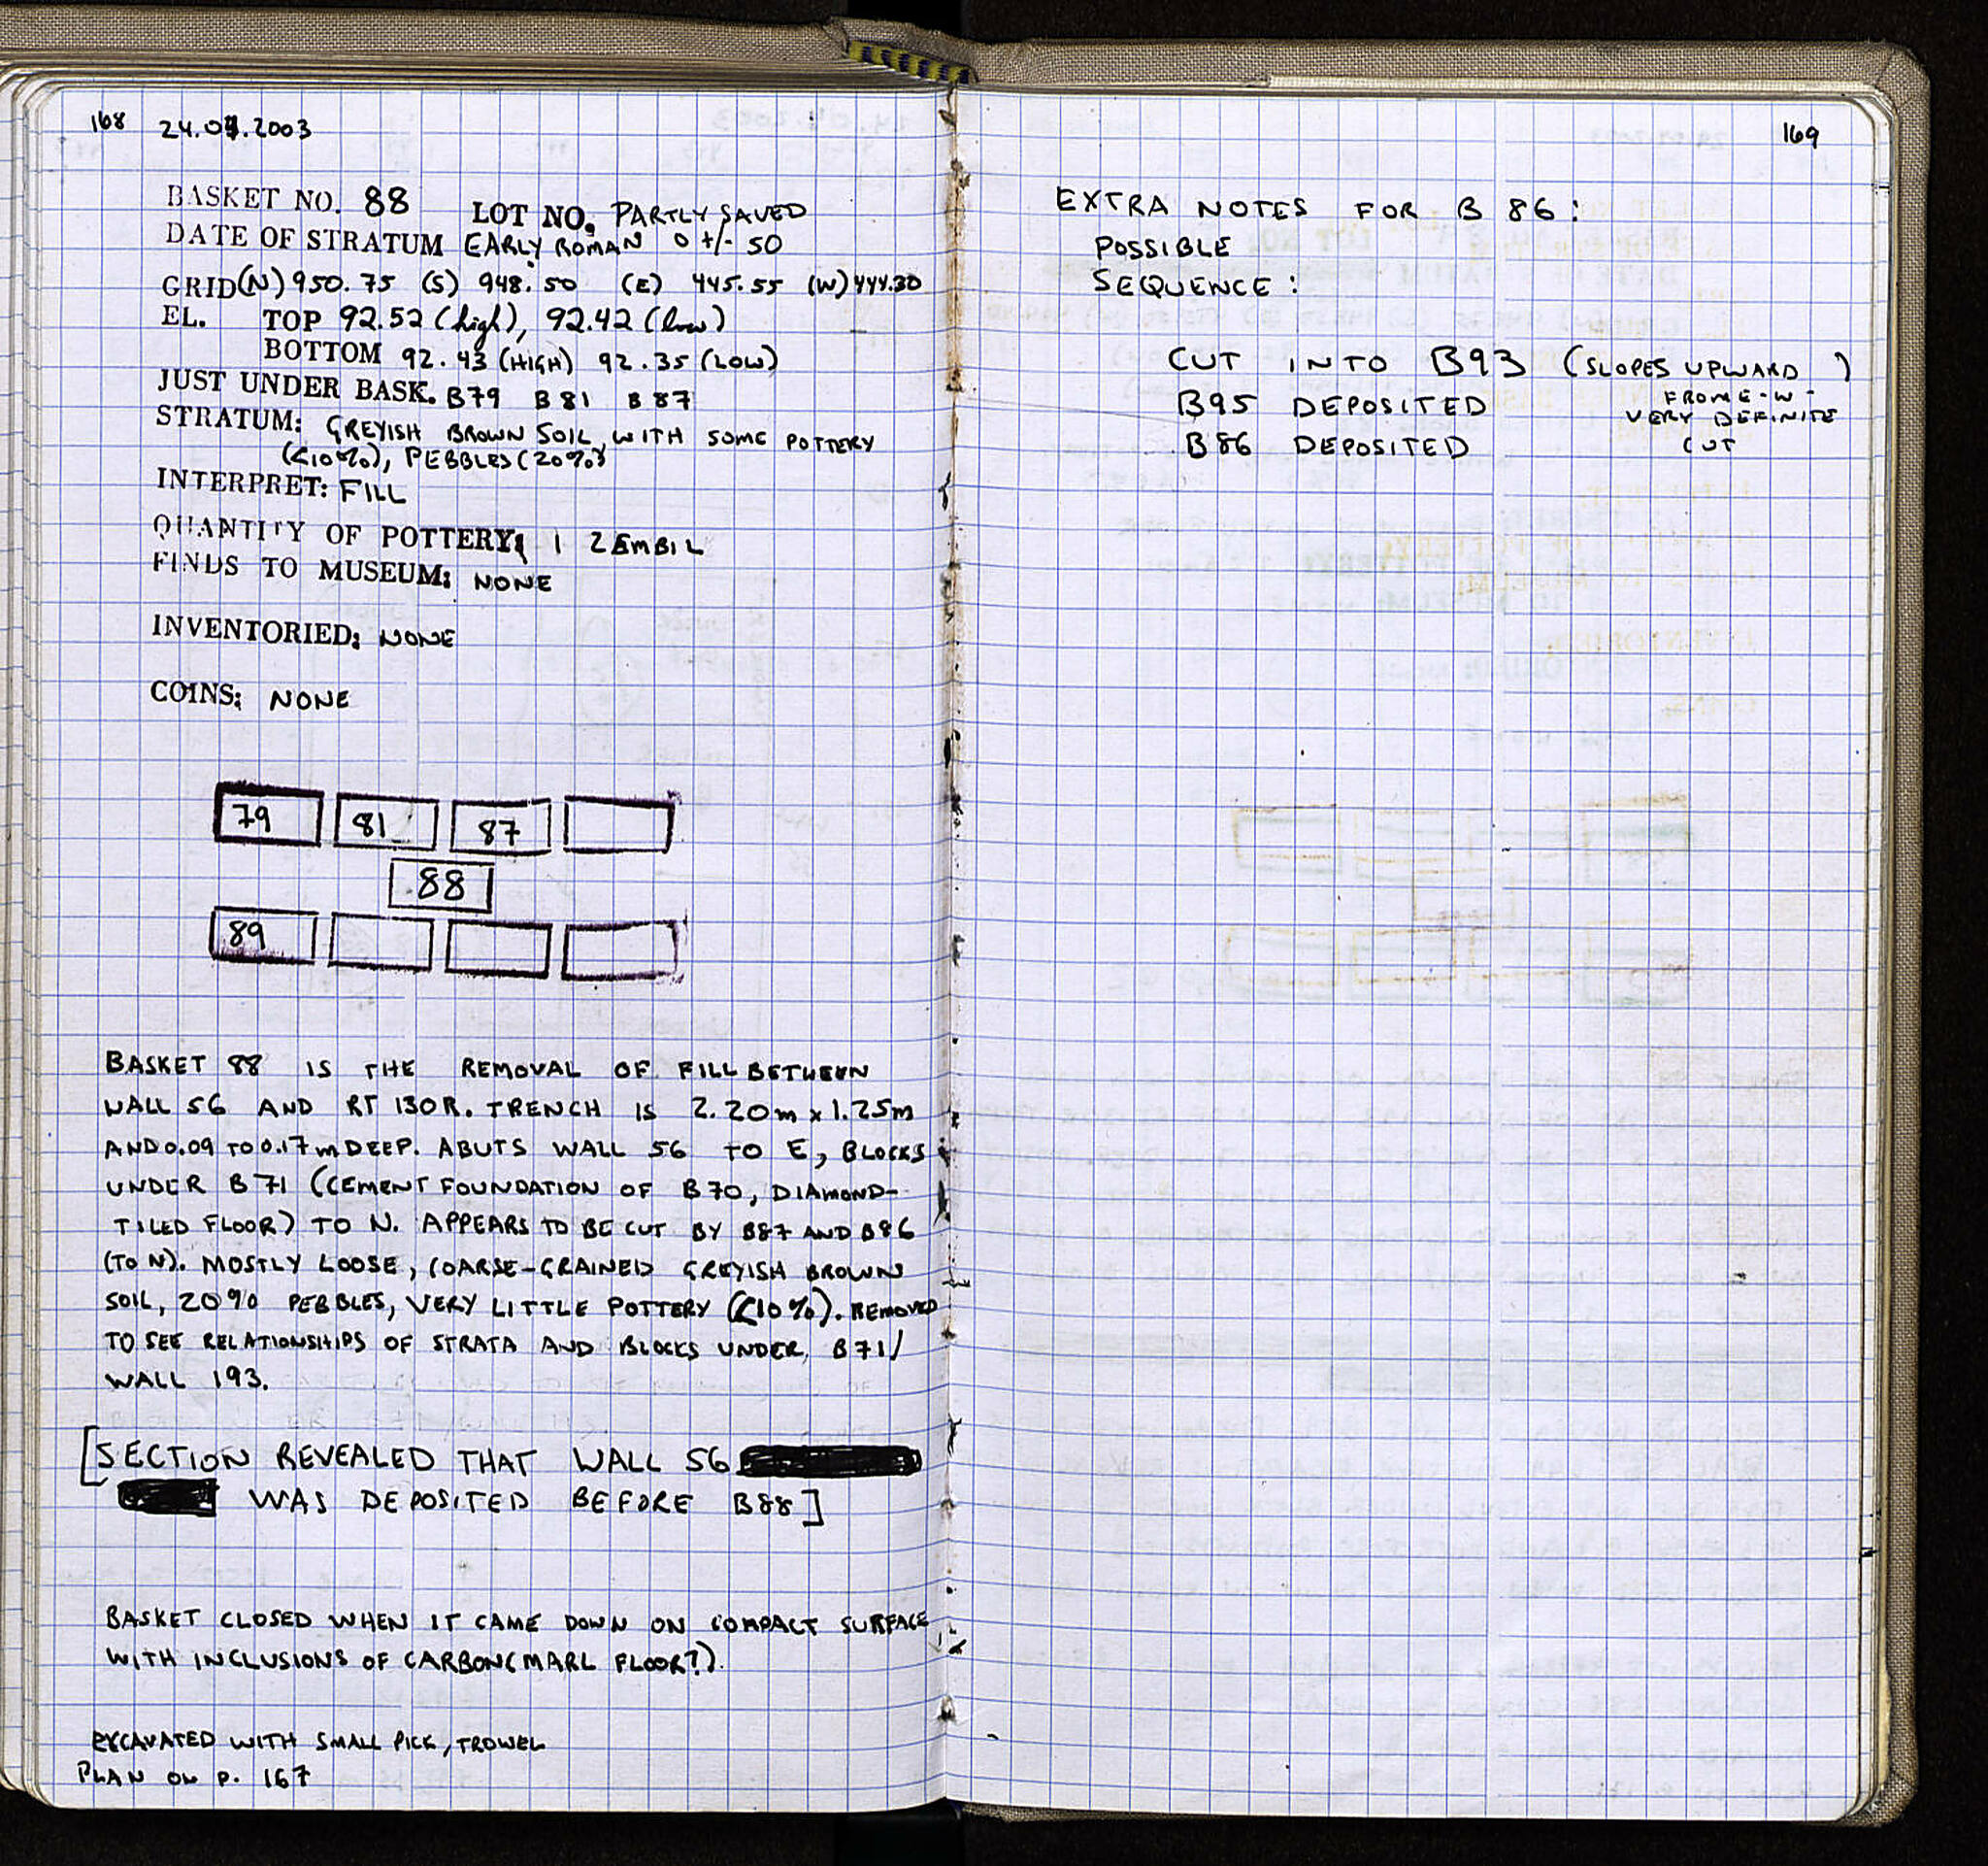 168 24.04.2003
BASKET NO. 88 LOT NO. PARTLY SAVED
DATE OF STRATUM EARLY ROMAN 0 +/- 50
GRID (N) 950.75 (S) 948.50 (E) 445.55 (W) 444.30
EL. TOP 92.52 (high), 92.42 (low)
BOTTOM 92.43 (HIGH) 92.35 (LOW)
JUST UNDER BASK. B79 B81 B87
STRATUM: GREYISH BROWN SOIL, WITH SOME POTTERY
(<10%), PEBBLES (20%)
INTERPRET: FILL
QUANTITY OF POTTERY: 1 ZEMBIL
FINDS TO MUSEUM: NONE
INVENTORIED: NONE
COINS: NONE
79 81 87
88
89
BASKET 88 IS THE REMOVAL OF FILL BETWEEN
WALL 56 AND RT 130R. TRENCH IS 2.20m x 1.25m
AND 0.09 TO 0.17m DEEP. ABUTS WALL 56 TO E, BLOCKS
UNDER B71 (CEMENT FOUNDATION OF B70, DIAMOND-
TILED FLOOR) TO N. APPEARS TO BE CUT BY B87 AND B86
(TO N). MOSTLY LOOSE, COARSE-GRAINED GREYISH BROWN
SOIL, 20% PEBBLES, VERY LITTLE POTTERY (<10%). REMOVED
TO SEE RELATIONSHIPS OF STRATA AND BLOCKS UNDER B71/
WALL 193.
[SECTION REVEALED THAT WALL 56
WAS DEPOSITED BEFORE B88]
BASKET CLOSED WHEN IT CAME DOWN ON COMPACT SURFACE
WITH INCLUSIONS OF CARBON (MARL FLOOR?).
EXCAVATED WITH SMALL PICK, TROWEL
PLAN ON P. 167
169
EXTRA NOTES FOR B 86:
POSSIBLE
SEQUENCE:
CUT INTO B93 (SLOPES UPWARD )
FROM E-W -
B95 DEPOSITED VERY DEFINITE
B86 DEPOSITED CUT